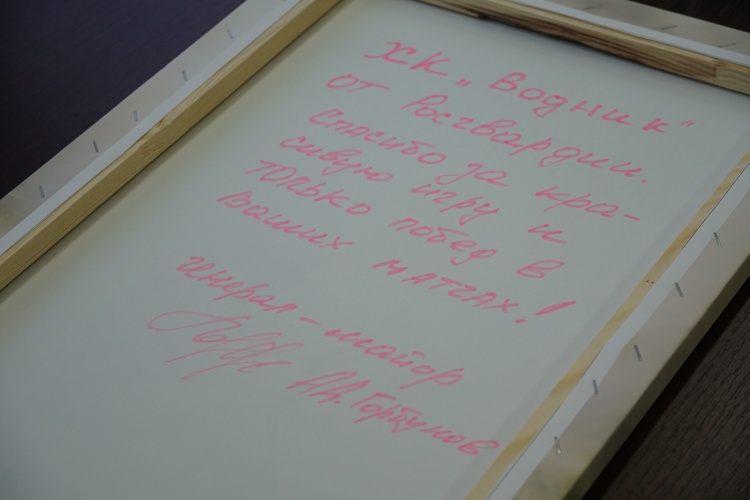 ХК „Водник"
от Росгвардии.
Спасибо за кра-
сивую игру и
только побед в
ваших матчах!
генерал-майор
А.А. Горбунов